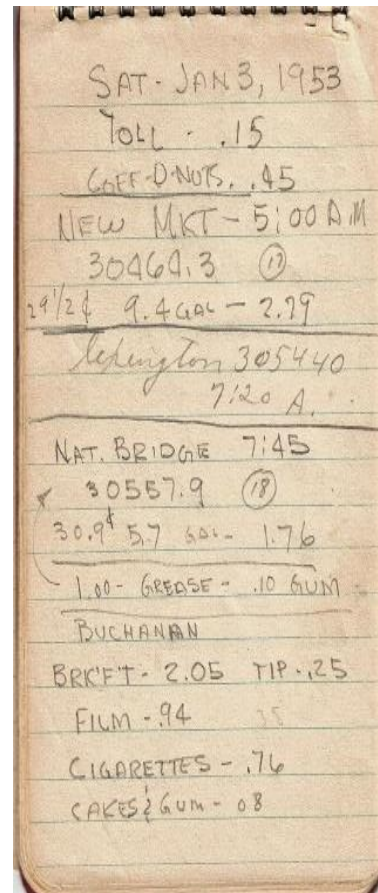 SAT - JAN 3, 1953
TOLL - .15
COFF-D-NUTS. .45
NEW MKT - 5:00 A.M
30464.3 (17)
29 1/2 ¢ 9.4 GAL - 2.79
Lexington 305440
7:20 A.
NAT. BRIDGE 7:45
30557.9 (18)
30.9¢ 5.7 GAL - 1.76
1.00 - GREASE - .10 GUM
BUCHANAN
BRK'F'T - 2.05 TIP - .25
FILM - .94
CIGARETTES - .76
CAKES & GUM - 08